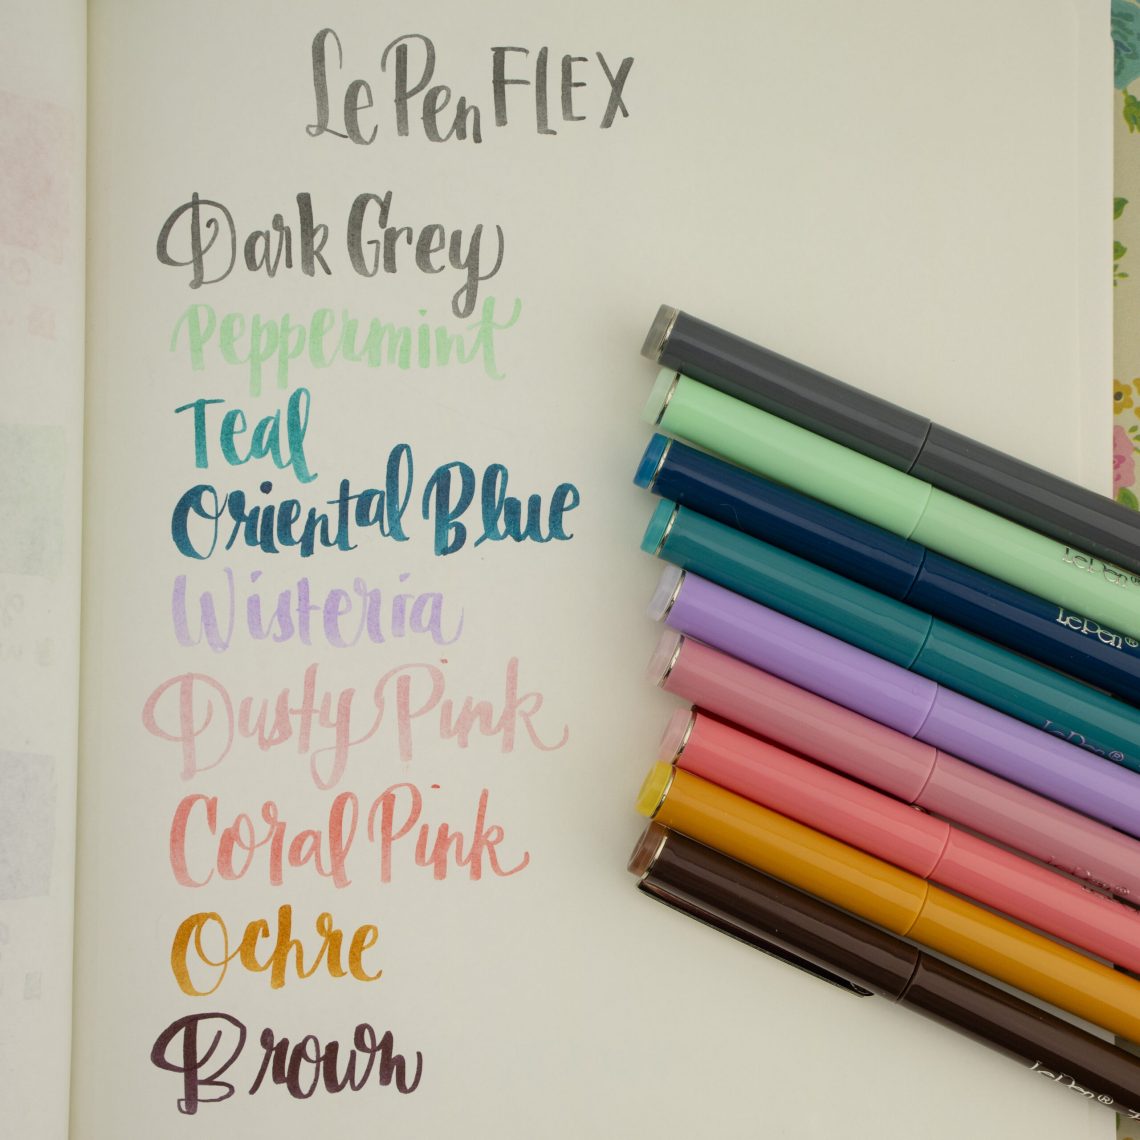 Le Pen FLEX
Dark Grey
Peppermint
Teal
Oriental Blue
Wisteria
Dusty Pink
Coral Pink
Ochre
Brown
Le Pen®
Le Pen®
Le Pen®
Le Pen
Le Pen®